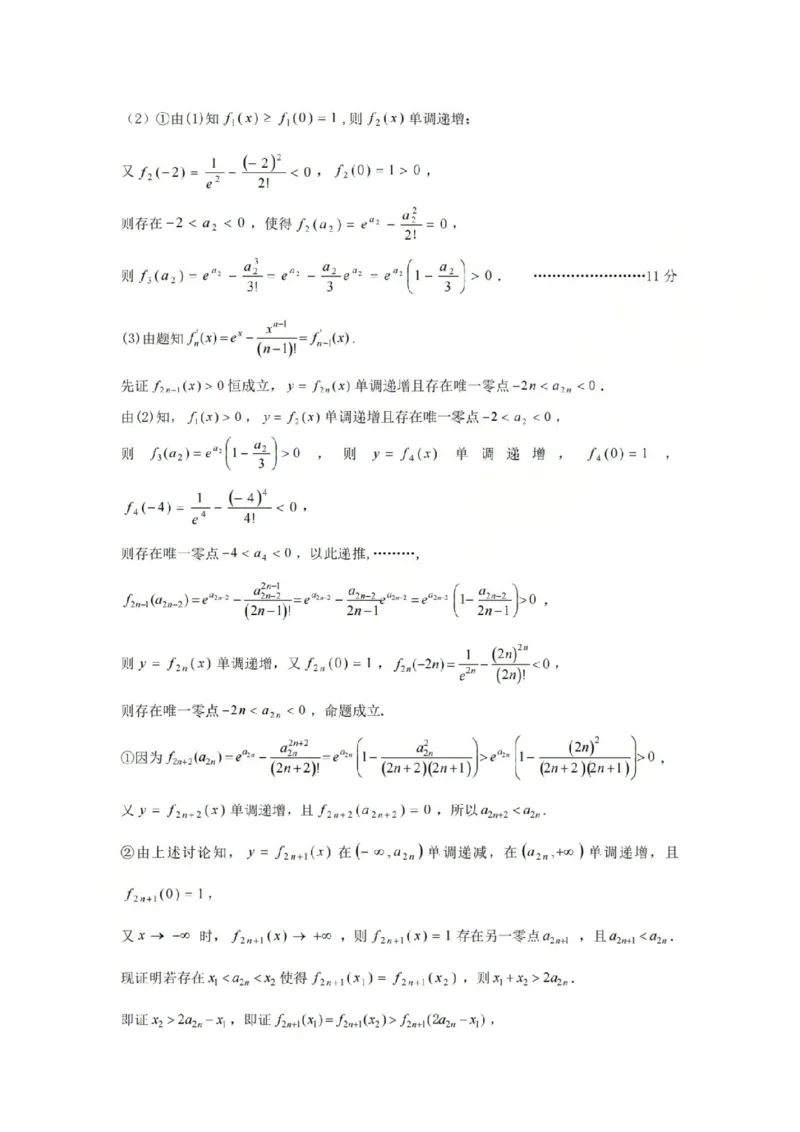 （2）①由(1)知 f₁(x) ≥ f₁(0) = 1 ,则 f₂(x) 单调递增；
又 f₂(−2) = \frac{1}{e^2} − \frac{(−2)^2}{2!} < 0 ， f₂(0) = 1 > 0 ，
则存在 −2 < a₂ < 0 ，使得 f₂(a₂) = e^{a_2} − \frac{a_2^2}{2!} = 0 ，
则 f₃(a₂) = e^{a_2} − \frac{a_2^3}{3!} = e^{a_2} − \frac{a_2}{3} e^{a_2} = e^{a_2} (1 − \frac{a_2}{3}) > 0 ． ························11 分
(3)由题知 f_n^'(x) = e^x − \frac{x^{a−1}}{(n−1)!} = f_{n−1}^'(x) .
先证 f_{2n−1}(x) > 0 恒成立， y = f_{2n}(x) 单调递增且存在唯一零点 −2n < a_{2n} < 0 ．
由(2)知， f₁(x) > 0 ， y = f₂(x) 单调递增且存在唯一零点 −2 < a₂ < 0 ，
则 f₃(a₂) = e^{a_2} (1 − \frac{a_2}{3}) > 0 ， 则 y = f₄(x) 单 调 递 增 ， f₄(0) = 1 ，
f₄(−4) = \frac{1}{e^4} − \frac{(−4)^4}{4!} < 0 ，
则存在唯一零点 −4 < a₄ < 0 ，以此递推,………，
f_{2n−1}(a_{2n−2}) = e^{a_{2n−2}} − \frac{a_{2n−2}^{2n−1}}{(2n−1)!} = e^{a_{2n−2}} − \frac{a_{2n−2}}{2n−1} e^{a_{2n−2}} = e^{a_{2n−2}} (1 − \frac{a_{2n−2}}{2n−1}) > 0 ，
则 y = f_{2n}(x) 单调递增，又 f_{2n}(0) = 1 ， f_{2n}(−2n) = \frac{1}{e^{2n}} − \frac{(2n)^{2n}}{(2n)!} < 0 ，
则存在唯一零点 −2n < a_{2n} < 0 ，命题成立.
①因为 f_{2n+2}(a_{2n}) = e^{a_{2n}} − \frac{a_{2n}^{2n+2}}{(2n+2)!} = e^{a_{2n}} (1 − \frac{a_{2n}^2}{(2n+2)(2n+1)}) > e^{a_{2n}} (1 − \frac{(2n)^2}{(2n+2)(2n+1)}) > 0 ，
又 y = f_{2n+2}(x) 单调递增，且 f_{2n+2}(a_{2n+2}) = 0 ，所以 a_{2n+2} < a_{2n} .
②由上述讨论知， y = f_{2n+1}(x) 在 (−∞, a_{2n}) 单调递减，在 (a_{2n}, +∞) 单调递增，且
f_{2n+1}(0) = 1 ，
又 x → −∞ 时， f_{2n+1}(x) → +∞ ，则 f_{2n+1}(x) = 1 存在另一零点 a_{2n+1} ，且 a_{2n+1} < a_{2n} ．
现证明若存在 x₁ < a_{2n} < x₂ 使得 f_{2n+1}(x₁) = f_{2n+1}(x₂) ，则 x₁ + x₂ > 2a_{2n} ．
即证 x₂ > 2a_{2n} − x₁ ，即证 f_{2n+1}(x₁) = f_{2n+1}(x₂) > f_{2n+1}(2a_{2n} − x₁) ，